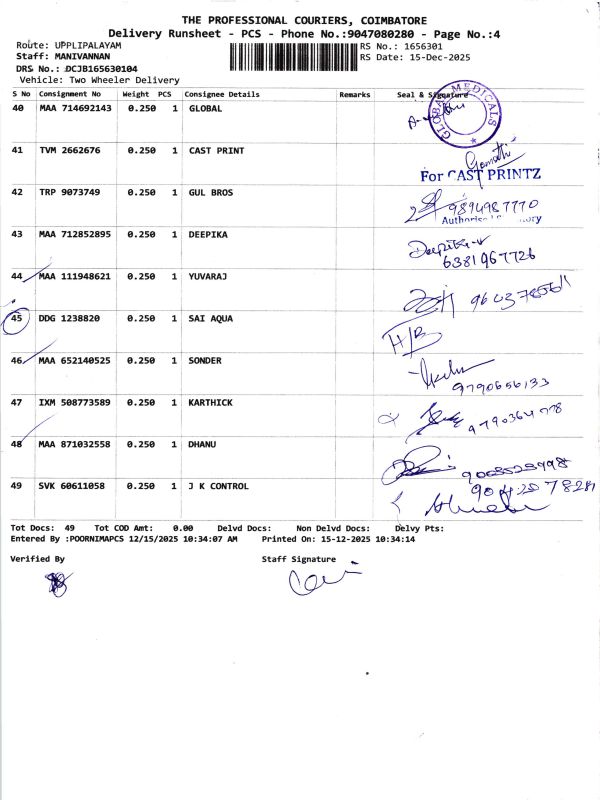 THE PROFESSIONAL COURIERS, COIMBATORE
Delivery Runsheet - PCS - Phone No.:9047080280 - Page No.:4
Route: UPPLIPALAYAM RS No.: 1656301
Staff: MANIVANNAN RS Date: 15-Dec-2025
DRS No.: DCJB165630104
Vehicle: Two Wheeler Delivery
S No Consignment No Weight PCS Consignee Details Remarks Seal & Signature
40 MAA 714692143 0.250 1 GLOBAL
GLOBAL MEDICALS
41 TVM 2662676 0.250 1 CAST PRINT
Gomathi
For CAST PRINTZ
42 TRP 9073749 0.250 1 GUL BROS
9894987770
43 MAA 712852895 0.250 1 DEEPIKA
Deepika
6381967726
44 MAA 111948621 0.250 1 YUVARAJ
45 DDG 1238820 0.250 1 SAI AQUA
H/B
46 MAA 652140525 0.250 1 SONDER
9790656133
47 IXM 508773589 0.250 1 KARTHICK
9790364778
48 MAA 871032558 0.250 1 DHANU
49 SVK 60611058 0.250 1 J K CONTROL
Tot Docs: 49 Tot COD Amt: 0.00 Delvd Docs: Non Delvd Docs: Delvy Pts:
Entered By :POORNIMAPCS 12/15/2025 10:34:07 AM Printed On: 15-12-2025 10:34:14
Verified By Staff Signature